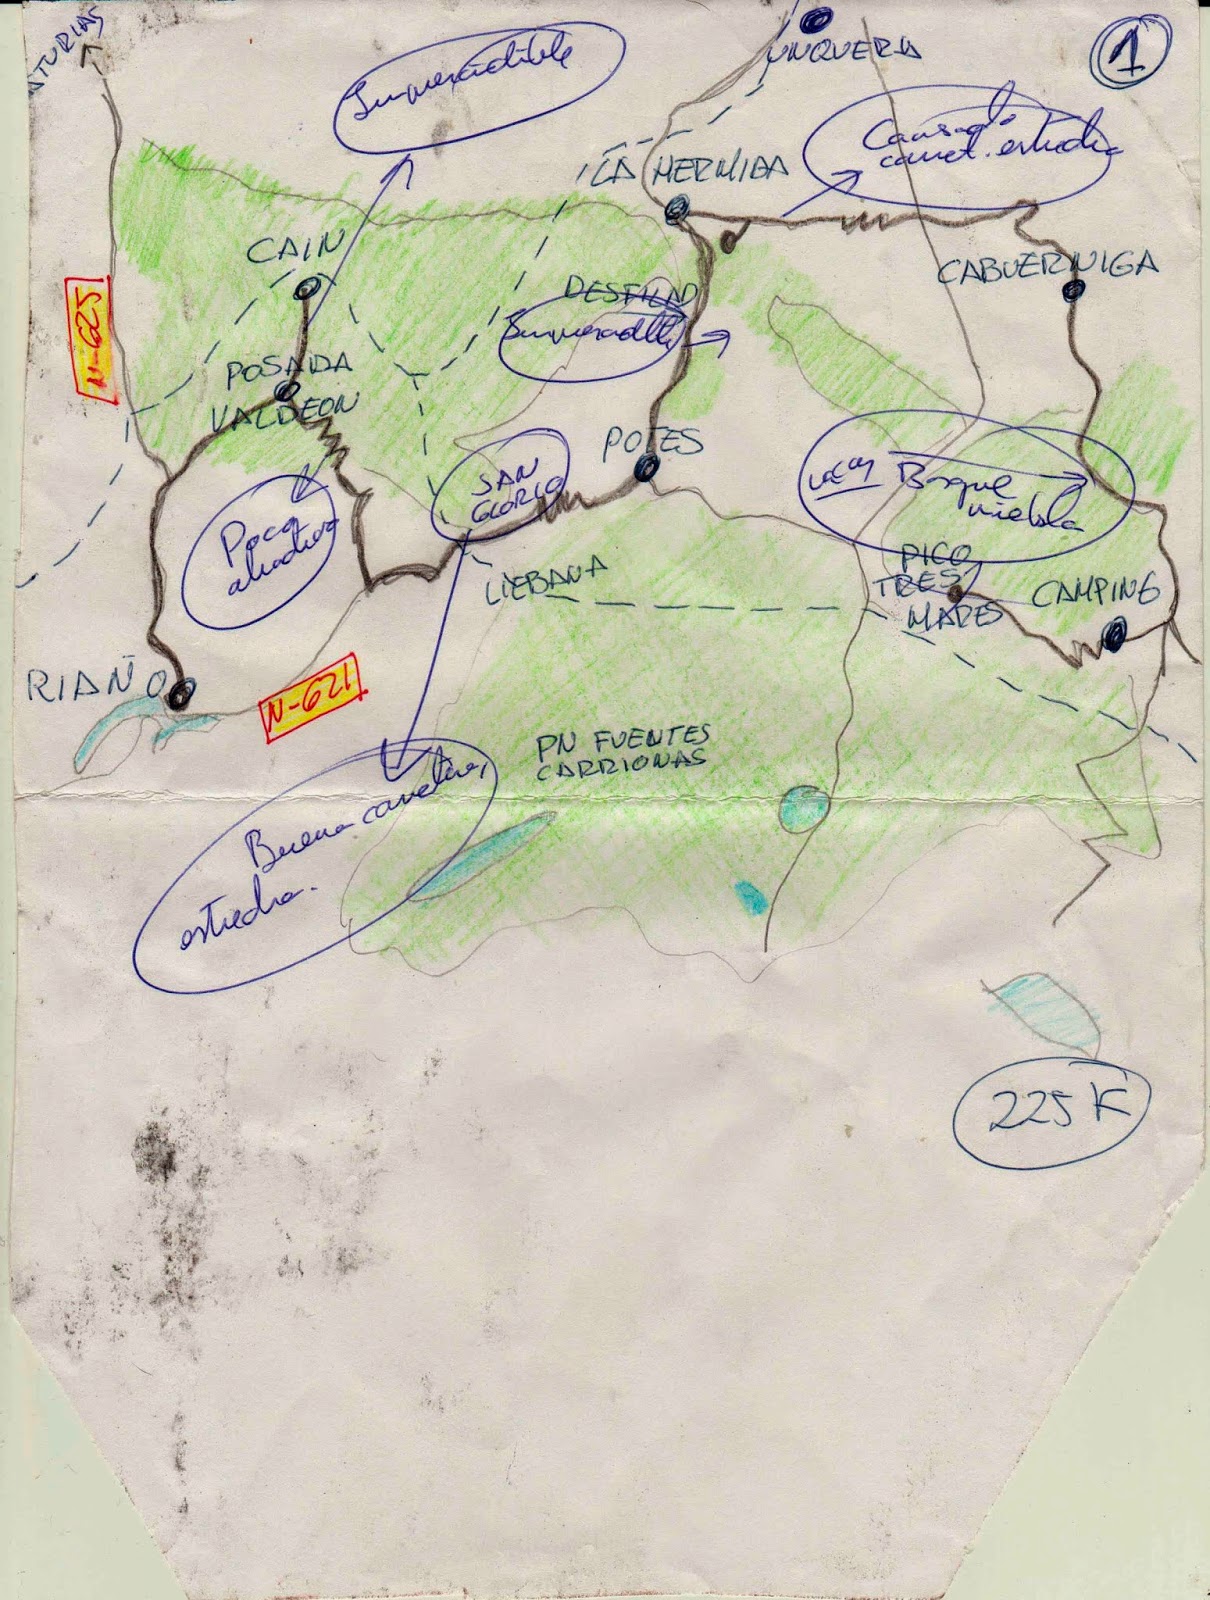 1
UNQUERA
Imprescindible
LA HERMIDA
carret. estrecha
CAIN
CABUERNIGA
DESFILAD
N-625
POSADA
VALDEON
POTES
SAN
GLORIO
vacas Bosque
niebla
Poca
PICO
TRES
MARES
LIEBANA
CAMPING
RIAÑO
N-621
PN FUENTES
CARRIONAS
Buena carretera,
estrecha.
225 K